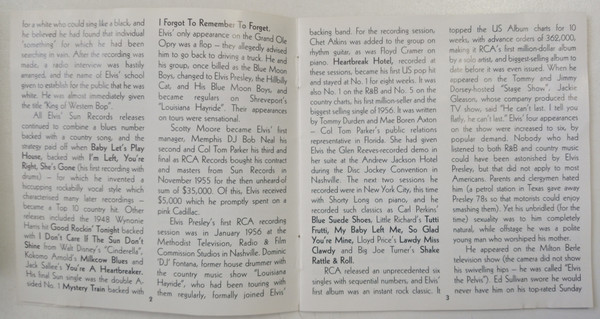 for a white who could sing like a black, and
he believed he had found that individual
"something" for which he had been
searching in vain. After the recording was
made, a radio interview was hastily
arranged, and the name of Elvis' school
given to establish for the public that he was
white. He was almost immediately given
the title "King of Western Bop".
All Elvis' Sun Records releases
continued to combine a blues number
backed with a country song, and the
strategy paid off when Baby Let's Play
House, backed with I'm Left, You're
Right, She's Gone (his first recording with
drums) – for which he invented a
hiccupping rockabilly vocal style which
characterised many later recordings –
became a Top 10 country hit. Other
releases included the 1948 Wynonie
Harris hit Good Rockin' Tonight backed
with I Don't Care If The Sun Don't
Shine from Walt Disney's "Cinderella",
Kokomo Arnold's Milkcow Blues and
Jack Sallee's You're A Heartbreaker.
His final Sun single was the double A-
sided No. 1 Mystery Train backed with
2
I Forgot To Remember To Forget.
Elvis' only appearance on the Grand Ole
Opry was a flop – they allegedly advised
him to go back to driving a truck. He and
his group, once billed as the Blue Moon
Boys, changed to Elvis Presley, the Hillbilly
Cat, and His Blue Moon Boys, and
became regulars on Shreveport's
"Louisiana Hayride". Their appearances
on tours were sensational.
Scotty Moore became Elvis' first
manager, Memphis DJ Bob Neal his
second and Col Tom Parker his third and
final as RCA Records bought his contract
and masters from Sun Records in
November 1955 for the then unheard of
sum of $35,000. Of this, Elvis received
$5,000 which he promptly spent on a
pink Cadillac.
Elvis Presley's first RCA recording
session was in January 1956 at the
Methodist Television, Radio & Film
Commission Studios in Nashville. Dominic
'DJ' Fontana, former house drummer with
the country music show "Louisiana
Hayride", who had been touring with
them regularly, formally joined Elvis'
backing band. For the recording session,
Chet Atkins was added to the group on
rhythm guitar, as was Floyd Cramer on
piano. Heartbreak Hotel, recorded at
these sessions, became his first US pop hit
and stayed at No. 1 for eight weeks. It was
also No. 1 on the R&B and No. 5 on the
country charts, his first million-seller and the
biggest selling single of 1956. It was written
by Tommy Durden and Mae Boren Axton
– Col Tom Parker's public relations
representative in Florida. She had given
Elvis the Glen Reeves-recorded demo in
her suite at the Andrew Jackson Hotel
during the Disc Jockey Convention in
Nashville. The next two sessions he
recorded were in New York City, this time
with Shorty Long on piano, and he
recorded such classics as Carl Perkins'
Blue Suede Shoes, Little Richard's Tutti
Frutti, My Baby Left Me, So Glad
You're Mine, Lloyd Price's Lawdy Miss
Clawdy and Big Joe Turner's Shake
Rattle & Roll.
RCA released an unprecedented six
singles with sequential numbers, and Elvis'
first album was an instant rock classic. It
3
topped the US Album charts for 10
weeks, with advance orders of 362,000,
making it RCA's first million-dollar album
by a solo artist, and biggest-selling album to
date before it was even issued. When he
appeared on the Tommy and Jimmy
Dorsey-hosted "Stage Show", Jackie
Gleason, whose company produced the
TV show, said "He can't last. I tell you
flatly, he can't last." Elvis' four appearances
on the show were increased to six, by
popular demand. Nobody who had
listened to both R&B and country music
could have been astonished by Elvis
Presley, but that did not apply to most
Americans. Parents and clergymen hated
him (a petrol station in Texas gave away
Presley 78s so that motorists could enjoy
smashing them). Yet his unbridled (for the
time) sexuality was to him completely
natural, while offstage he was a polite
young man who worshipped his mother.
He appeared on the Milton Berle
television show (the camera did not show
his swivelling hips – he was called "Elvis
the Pelvis"). Ed Sullivan swore he would
never have him on his top-rated Sunday